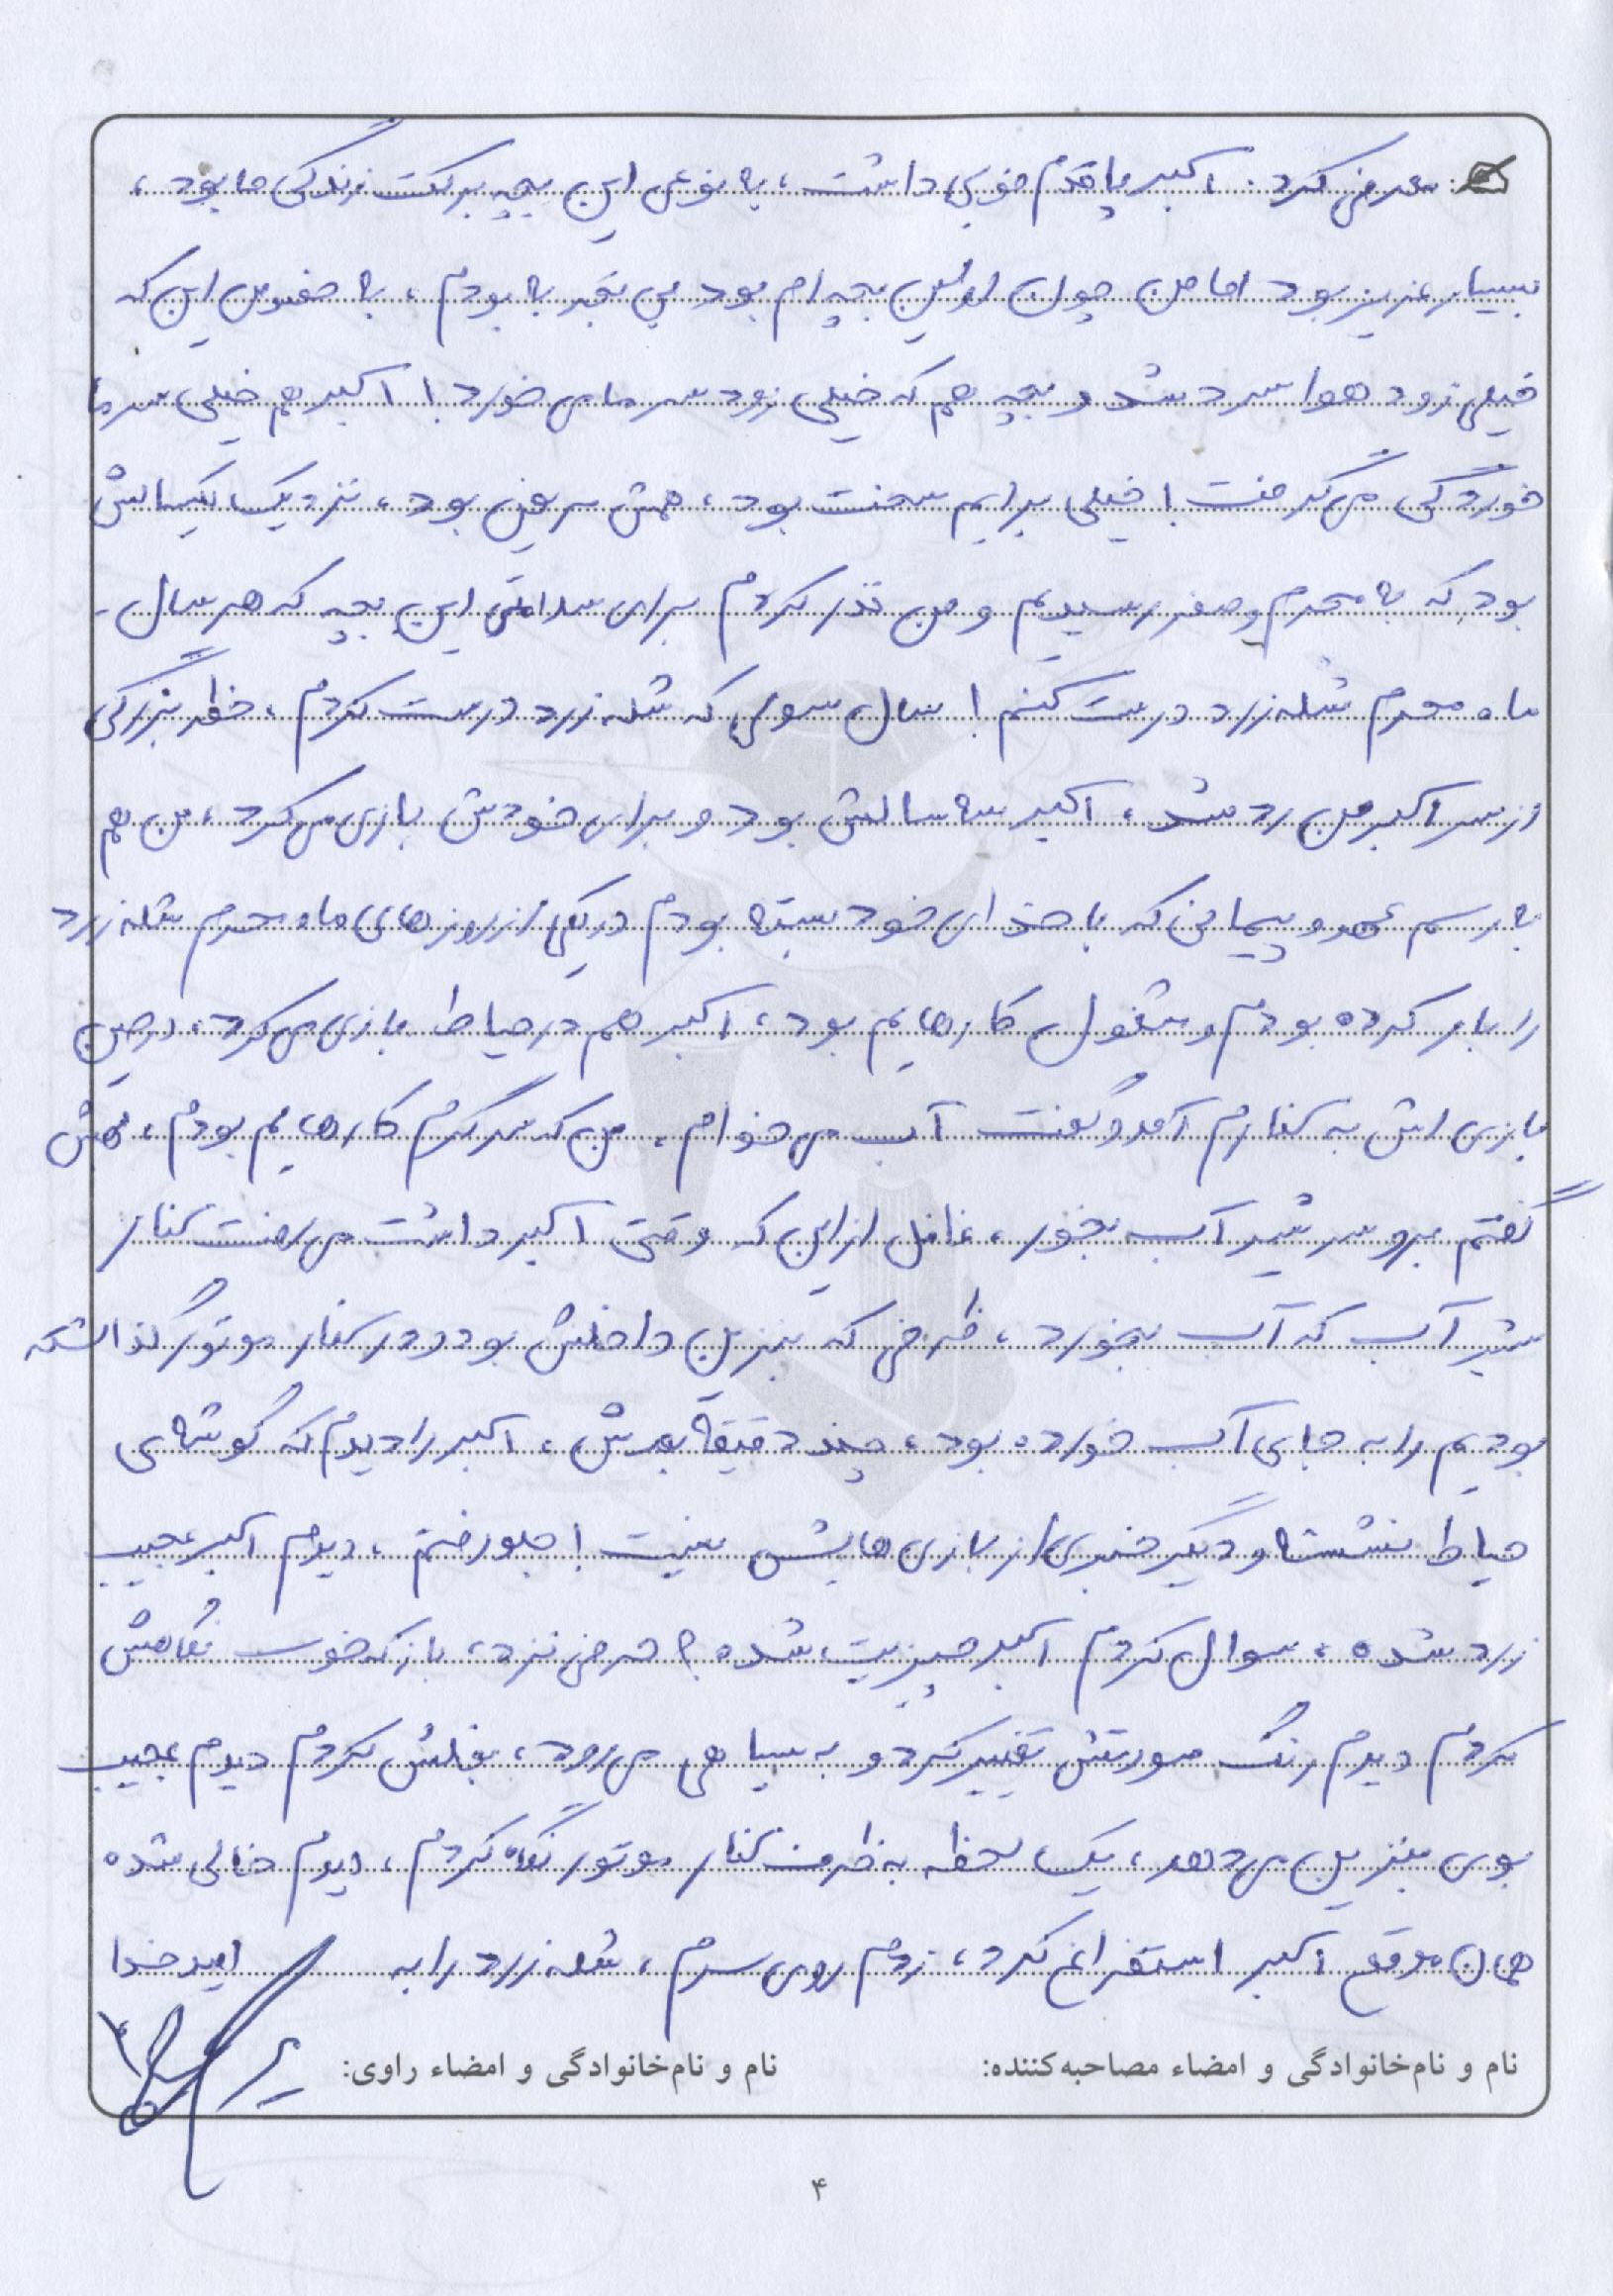 معرفی کرد. اکبر پا قدم خوبی داشت، به نوعی این بچه برکت زندگی ما بود،
بسیار عزیز بود اما من چون اولین بچه‌ام بود بی تجربه بودم، به خصوص این که
خیلی زود هوا سرد شد و بچه هم که خیلی زود سرما می خورد! اکبر هم خیلی سرما
خوردگی می گرفت! خیلی برایم سخت بود، همش مریض بود، نزدیک یکسالش
بود که به محرم و صفر رسیدیم و من نذر کردم برای سلامتی این بچه که هر سال -
ماه محرم شله زرد درست کنم! سال سومی که شله زرد درست کردم، خطر بزرگی
از سر اکبر من رد شد، اکبر سه سالش بود و برای خودش بازی می کرد، من هم
به رسم عهد و پیمانی که با خدای خود بسته بودم در یکی از روزهای ماه محرم شله زرد
را بار کرده بودم و مشغول کارهایم بود، اکبر هم در حیاط بازی می کرد، در حین
بازی اش به کنارم آمد و گفت آب می خوام، من که سرگرم کارهایم بودم، بهش
گفتم برو سر شیر آب بخور، غافل از این که وقتی اکبر داشت می رفت کنار
شیر آب که آب بخورد، ظرفی که بنزین داخلش بود و در کنار موتور گذاشته
بودیم را به جای آب خورده بود، چند دقیقه بعدش، اکبر را دیدم که گوشه‌ی
حیاط نشسته و دیگر خبری از بازی هایش نیست! جلو رفتم، دیدم اکبر عجیب
زرد شده، سوال کردم اکبر چیزیت شده؟ حرفی نزد، باز که خوب نگاهش
کردم دیدم رنگ صورتش تغییر کرد و به سیاهی می رود، بغلش کردم دیدم عجیب
بوی بنزین می دهد، یک لحظه به ظرف کنار موتور نگاه کردم، دیدم خالی شده
همان موقع اکبر استفراغ کرد، زدم روی سرم، شله زرد را به امید خدا
نام و نام‌خانوادگی و امضاء مصاحبه‌کننده: نام و نام‌خانوادگی و امضاء راوی:
۴